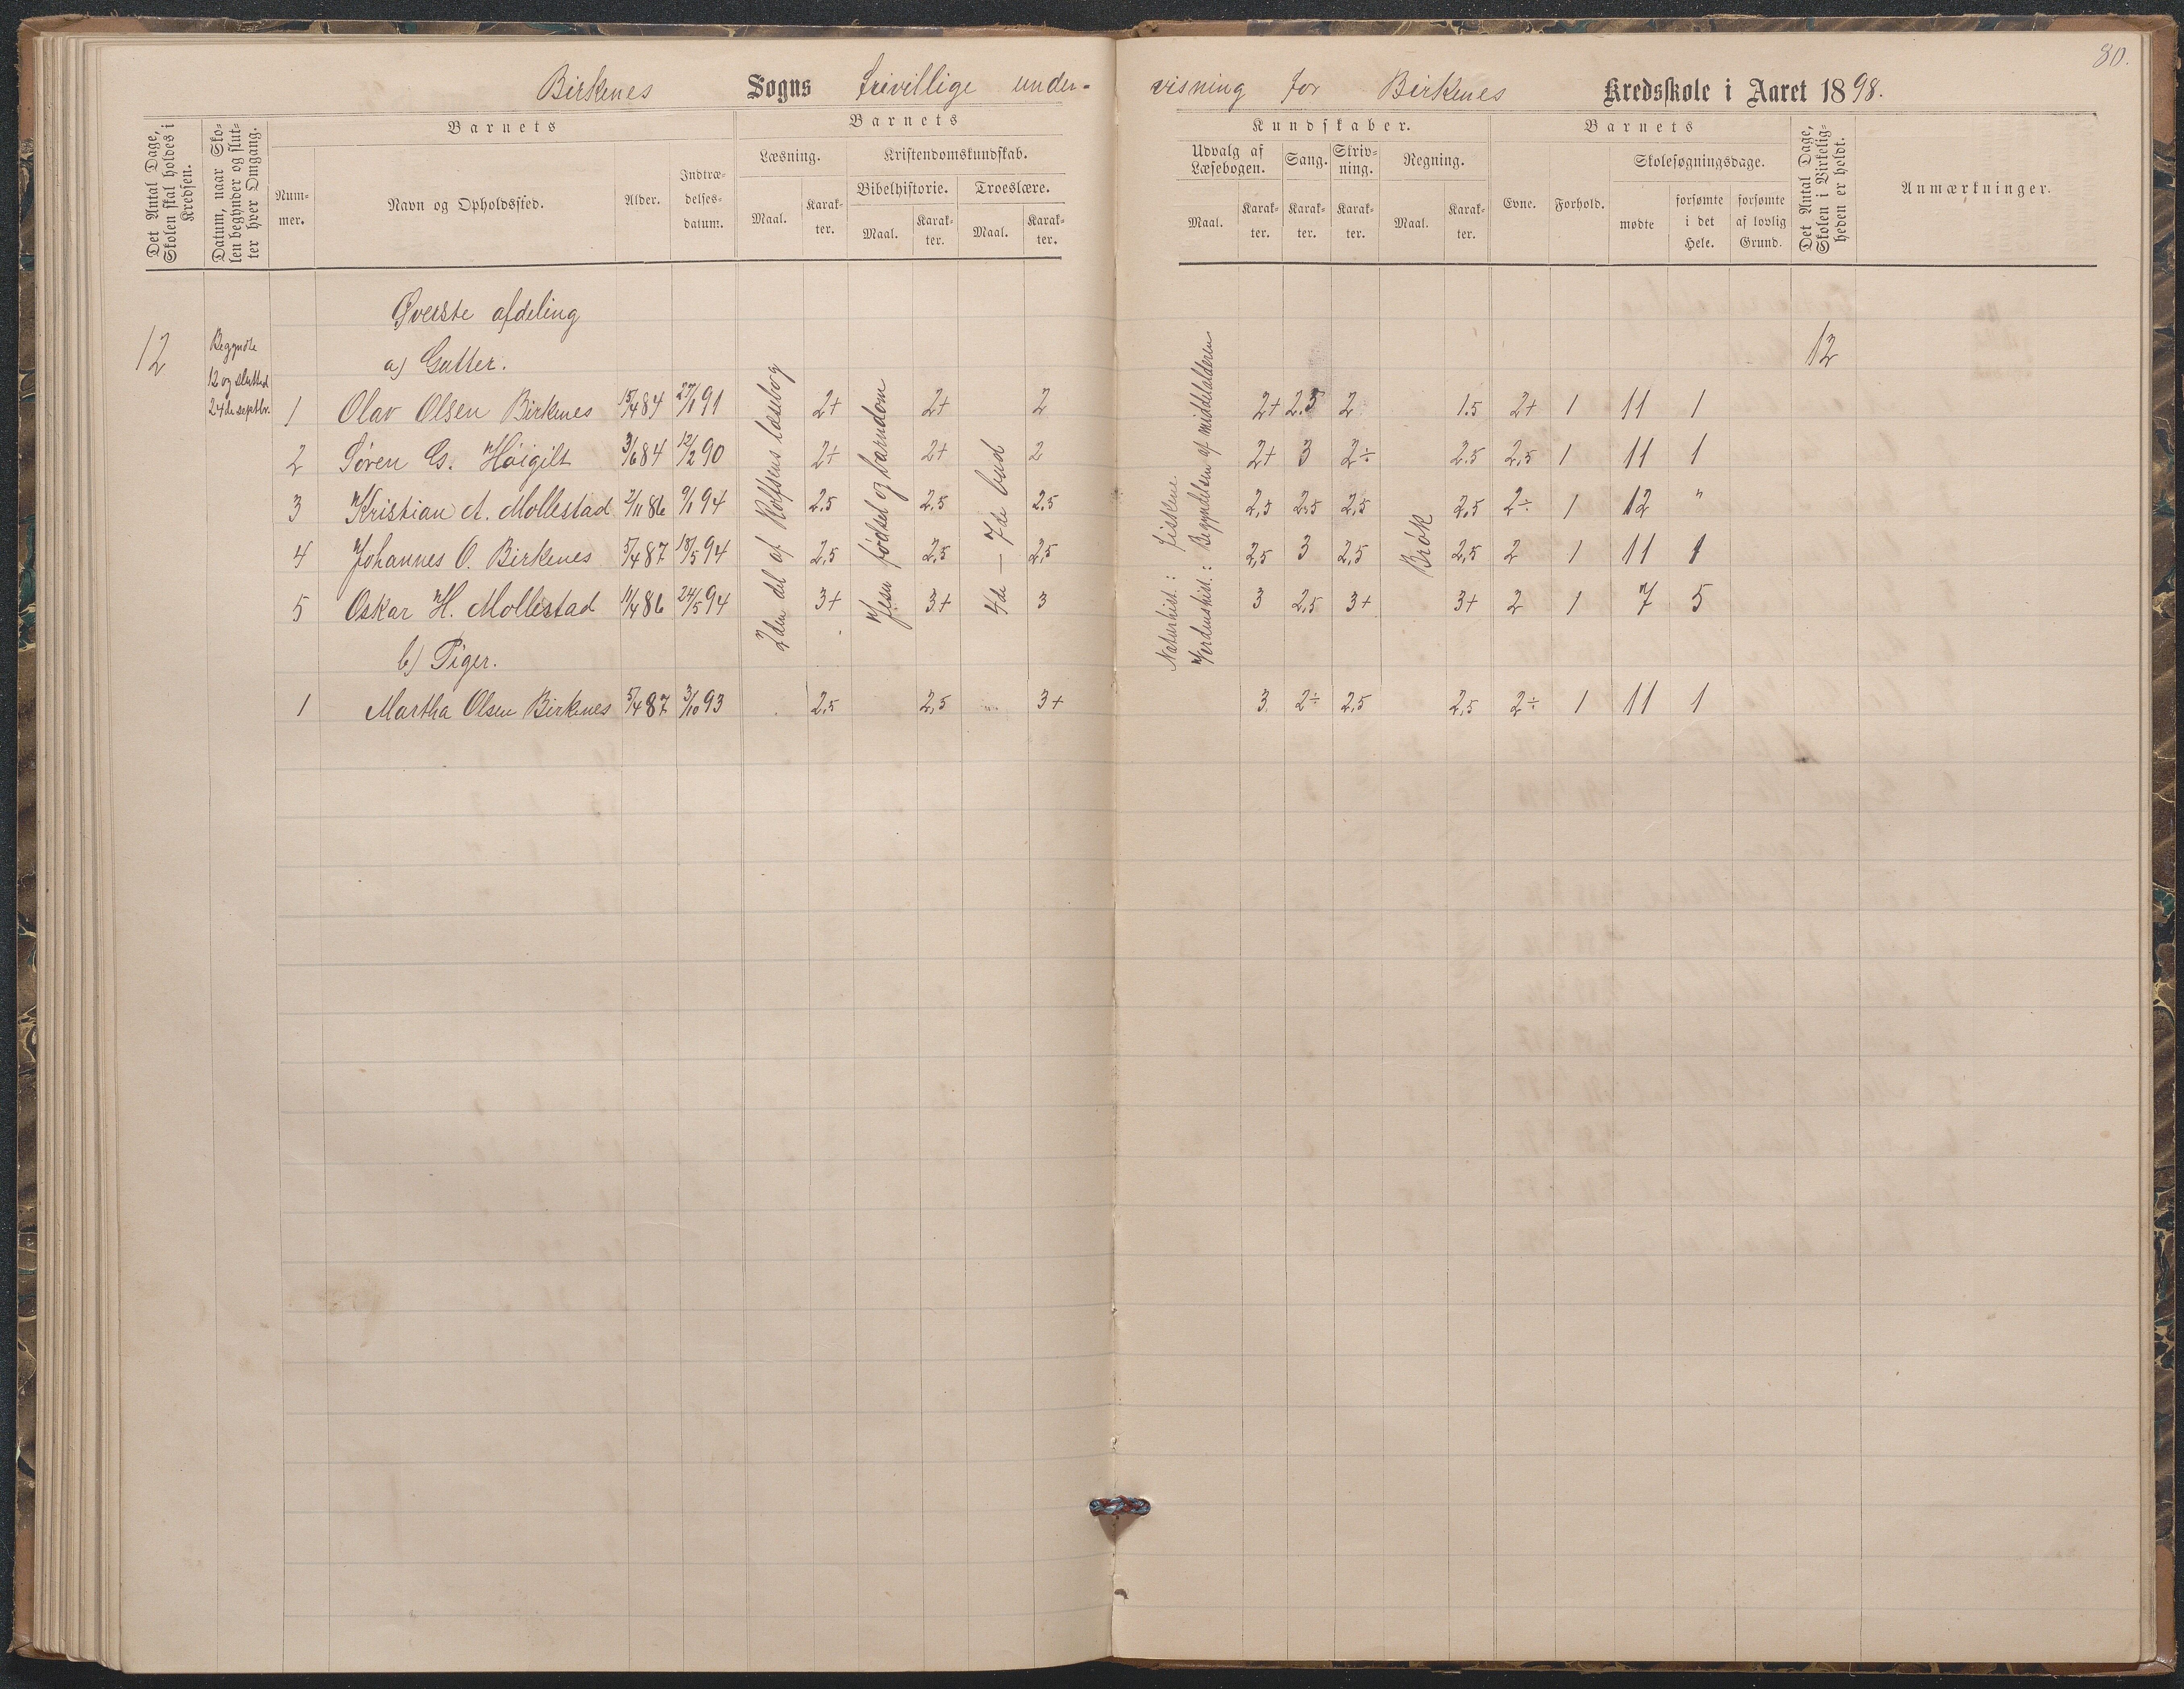 80.
Birkenes Sogns frivillige under-
visning for Birkenes Kredsskole i Aaret 1898.
Det Antal Dage, Skolen skal holdes i Kredsen.
Datum, naar Skolen begynder og slutter hver Omgang.
Barnets
Nummer.
Navn og Opholdssted.
Alder.
Indtrædelsesdatum.
Barnets
Læsning.
Maal.
Karakter.
Kristendomskundskab.
Bibelhistorie.
Maal.
Karakter.
Troeslære.
Maal.
Karakter.
Kundskaber.
Udvalg af Læsebogen.
Maal.
Karakter.
Sang.
Karakter.
Skrivning.
Karakter.
Regning.
Maal.
Karakter.
Barnets
Evne.
Forhold.
Skolesøgningsdage.
mødte
forsømte i det Hele.
forsømte af lovlig Grund.
Det Antal Dage, Skolen i Virkeligheden er holdt.
Anmærkninger.
Øverste afdeling
12
Begyndte
12 og slutted
24de septbr.
a) Gutter.
12
2den del af Rolfsens læsebog
Jesu fødsel og barndom
4de – 7de bud
Naturhist.: Fiskene
Verdenshist.: Begyndelsen af middelalderen
Brøk
1 Olav Olsen Birkenes 15/4 84 27/1 91 2+ 2+ 2 2+ 2.5 2 1.5 2+ 1 11 1
2 Søren G. Høigilt 3/6 84 12/2 90 2+ 2+ 2 2+ 3 2÷ 2.5 2,5 1 11 1
3 Kristian A. Mollestad 2/11 86 9/1 94 2.5 2,5 2,5 2,5 2,5 2,5 2,5 2÷ 1 12 "
4 Johannes O. Birkenes 5/4 87 18/5 94 2,5 2,5 2,5 2,5 3 2,5 2,5 2 1 11 1
5 Oskar H. Mollestad 11/4 86 24/5 94 3+ 3+ 3 3 2,5 3+ 3+ 2 1 7 5
b) Piger.
1 Martha Olsen Birkenes 5/4 87 3/10 93 2,5 2,5 3+ 3 2÷ 2,5 2,5 2÷ 1 11 1